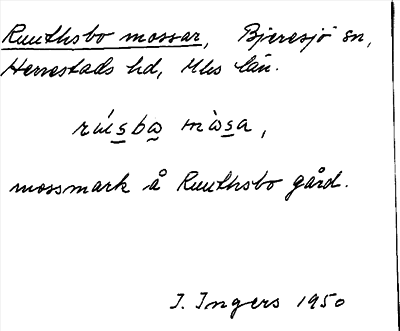 Ruuthsbo mossar, Bjeresjö sn,
Herrestads hd, Mhs län.
rúsba mòsa,
mossmark å Ruuthsbo gård.
I. Ingers 1950